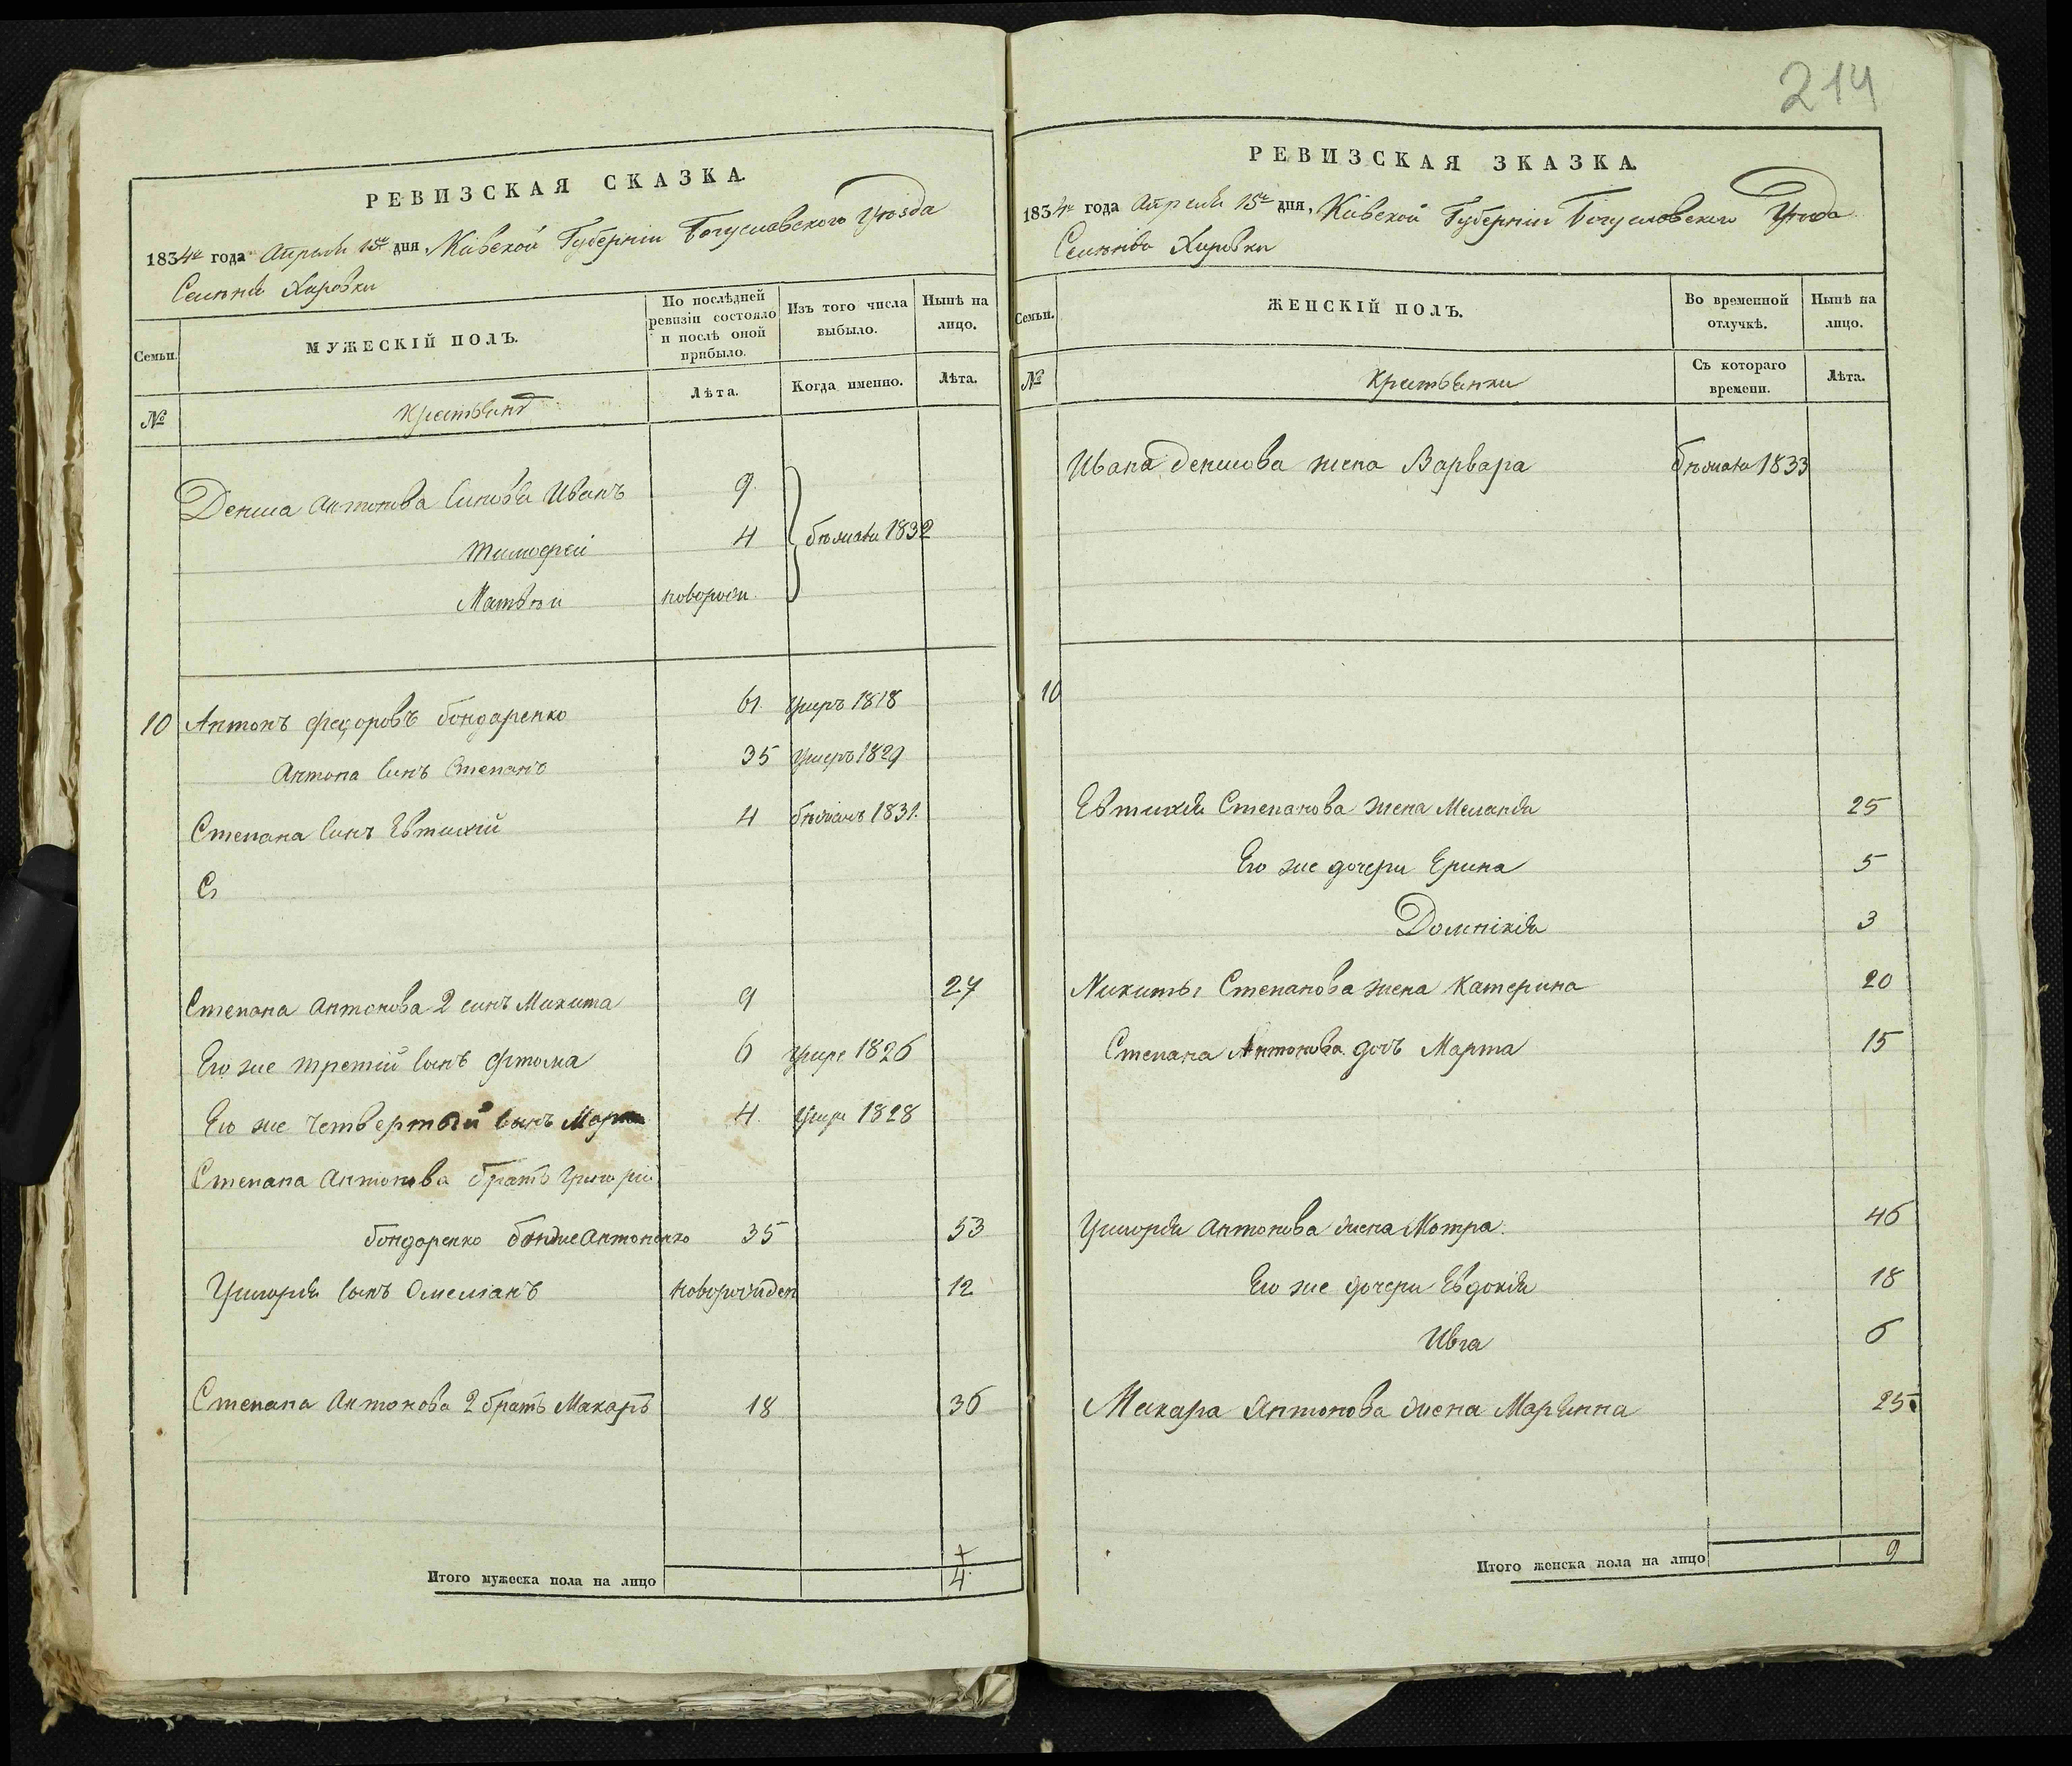 214
РЕВИЗСКАЯ СКАЗКА.
1834го года Апреля 15го дня, Кіевской Губерніи Богуславского Уѣзда
Селенія Хировки
Семьи.
МУЖЕСКІЙ ПОЛЪ.
По послѣдней ревизіи состояло и послѣ оной прибыло.
Изъ того числа выбыло.
Нынѣ на лицо.
№
Крестьянъ
Лѣта.
Когда именно.
Лѣта.
Дениса Антонова синовя Иванъ 9
Тимофей 4 бѣжали 1832
Матвѣи новорож
10 Антонъ Федоровъ бондаренко 61 умръ 1818
Антона синъ Степанъ 35 умеръ 1829
Степана синъ Евтихій 4 бѣжалъ 1831.
С
Степана Антонова 2 синъ Микита 9 27
Его же третій сынъ Фтома 6 умре 1826
Его же четвертый сынъ 4. умре 1828
Степана Антонова братъ Григорій
бондаренко онже Антоненко 35 53
Григорія сынъ Омелианъ новорожден 12
Степана Антонова 2 братъ Макаръ 18 36
Итого мужеска пола на лицо 4
РЕВИЗСКАЯ ЗКАЗКА.
1834го года Апреля 15го дня, Кіевской Губерніи Богуславского Уѣзда
Селенія Хировки
Семьи.
ЖЕНСКІЙ ПОЛЪ.
Во временной отлучкѣ.
Нынѣ на лицо.
№
Крестьянки
Съ котораго времени.
Лѣта.
Ивана денисова жена Варвара бѣжала 1833
10
Евтихія Степанова жена Меланія 25
Его же дочери Ерина 5
Домникія 3
Никиты Степанова жена Катерина 20
Степана Антонова дочъ Марта 15
Григорія Антонова жена Мотра. 46
Его же дочери Евдокія 18
Ивга 6
Макара Антонова жена Марянна 25
Итого женска пола на лицо 9